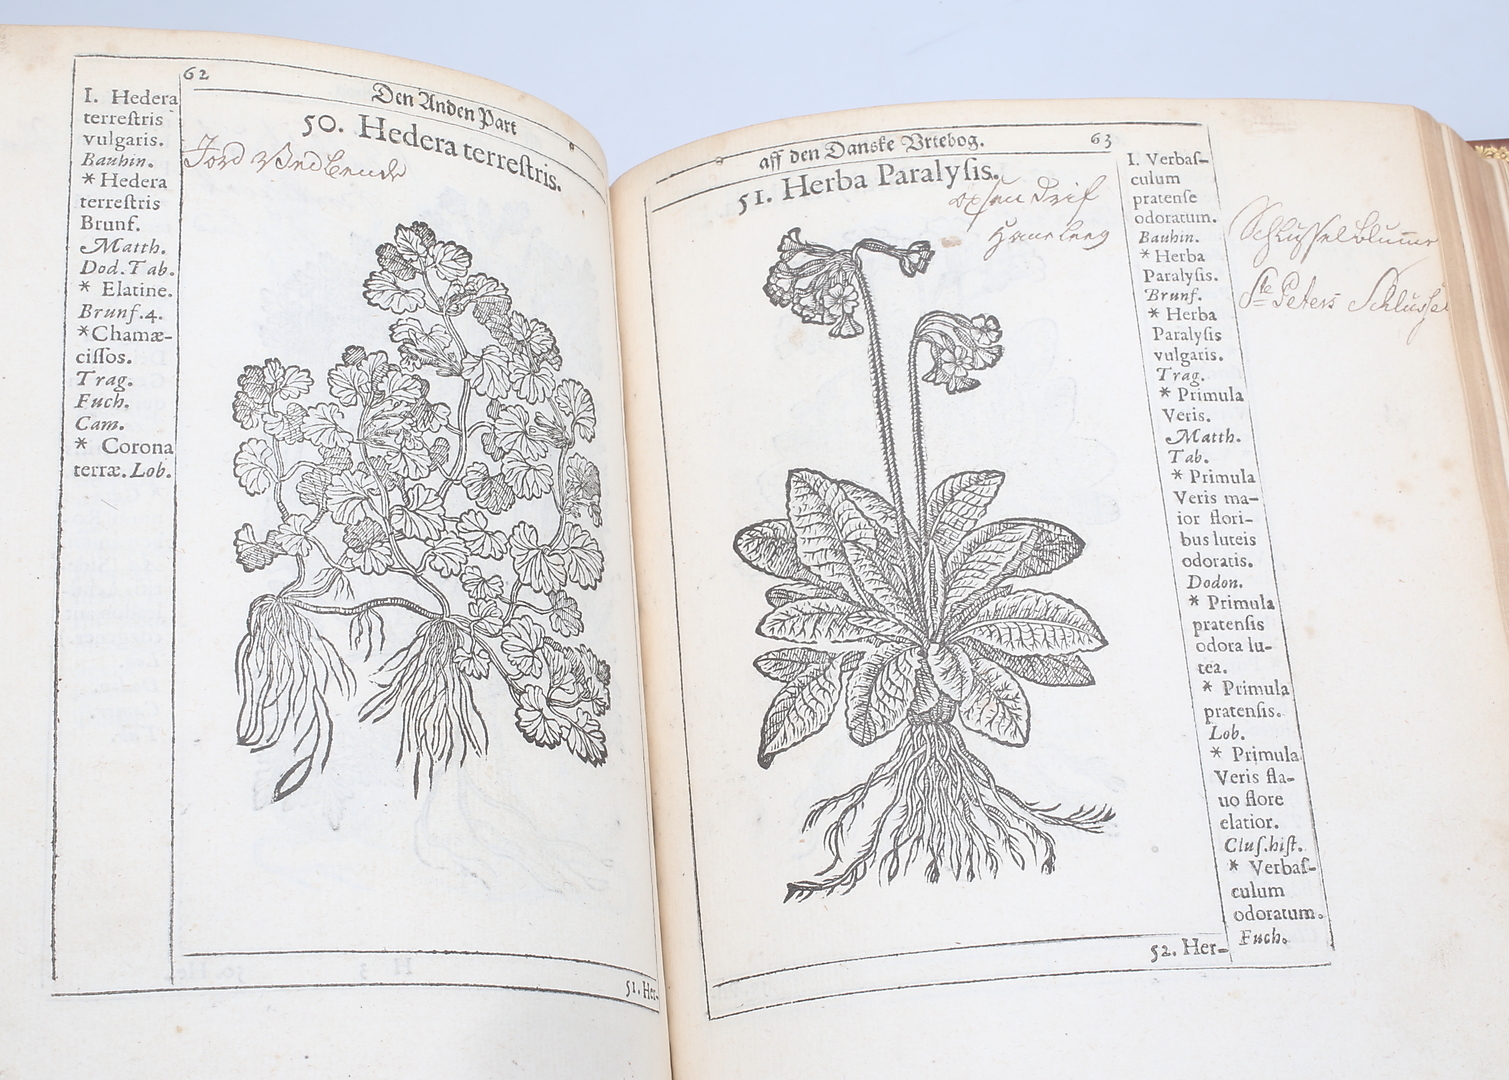 62
Den Anden Part
50. Hedera terrestris.
I. Hedera
terreſtris
vulgaris.
Bauhin.
* Hedera
terreſtris
Brunf.
Matth.
Dod. Tab.
* Elatine.
Brunf. 4.
*Chamæ-
ciſſos.
Trag.
Fuch.
Cam.
* Corona
terræ. Lob.
51. Her-
aff den Danske Vrtebog.
63
51. Herba Paralyſis.
I. Verbaſ-
culum
pratenſe
odoratum.
Bauhin.
* Herba
Paralyſis.
Brunf.
* Herba
Paralyſis
vulgaris.
Trag.
* Primula
Veris.
Matth.
Tab.
* Primula
Veris ma-
ior flori-
bus luteis
odoratis.
Dodon.
* Primula
pratenſis
odora lu-
tea.
* Primula
pratenſis.
Lob.
* Primula
Veris fla-
uo flore
elatior.
Cluſ. hiſt.
* Verbaſ-
culum
odoratum.
Fuch.
Schlüsselblume
Ste Peters Schlüssel
52. Her-